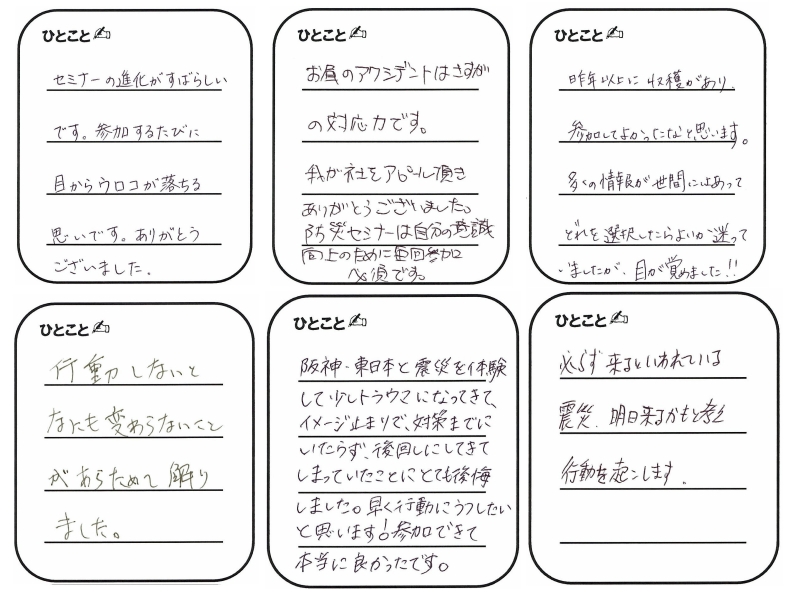 ひとこと
セミナーの進化がすばらしい
です。参加するたびに
目からウロコが落ちる
思いです。ありがとう
ございました。
ひとこと
お昼のアクシデントはさすが
の対応力です。
我が社をアピール頂き
ありがとうございました。
防災セミナーは自分の意識
向上のために毎回参加
必須です。
ひとこと
昨年以上に収穫があり、
参加してよかったなと思います。
多くの情報が世間にはあって
どれを選択したらよいか迷って
いましたが、目が覚めました!!
ひとこと
行動しないと
なにも変わらないこと
があらためて解り
ました。
ひとこと
阪神・東日本と震災を体験
して少しトラウマになってきて、
イメージ止まりで、対策までに
いたらず、後回しにしてきて
しまっていたことにとても後悔
しました。早く行動にうつしたい
と思います!参加できて
本当に良かったです。
ひとこと
必らず来るといわれている
震災、明日来るかもと考え
行動を起こします。